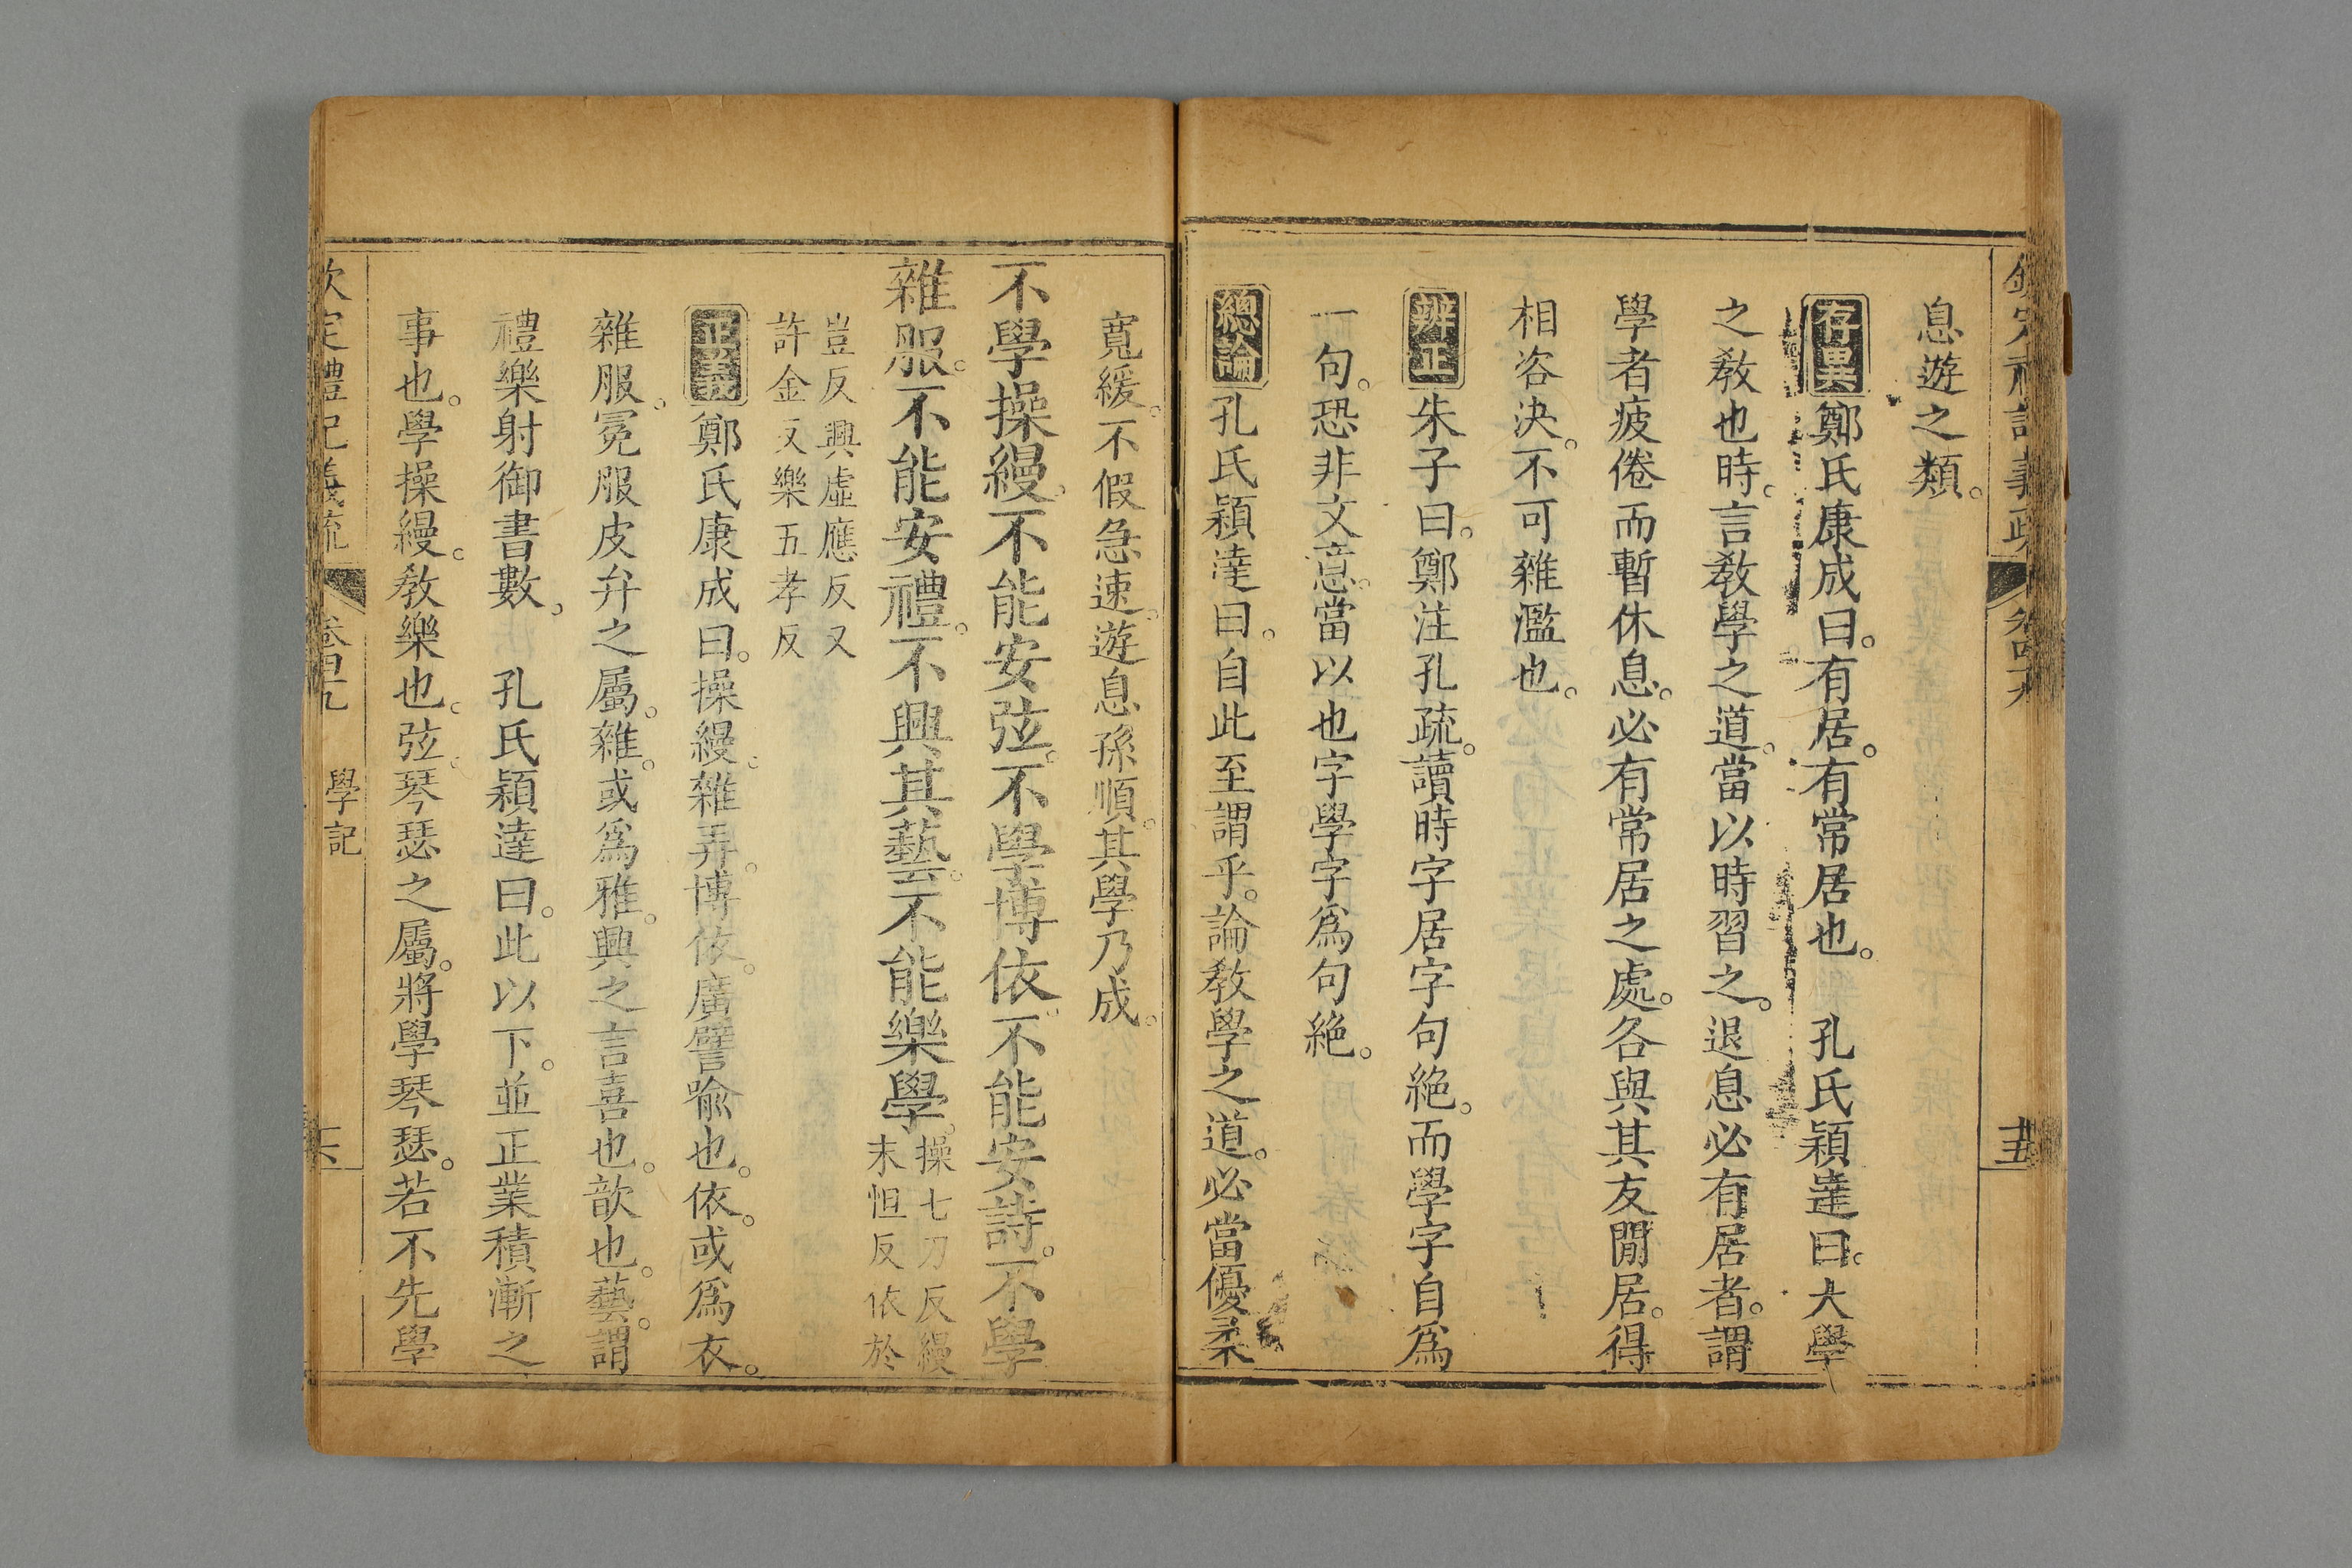 息遊之類。
存異鄭氏康成曰。有居。有常居也。 孔氏穎達曰。大學
之教也時。言教學之道。當以時習之。退息必有居者。謂
學者疲倦而暫休息。必有常居之處。各與其友閒居。得
相咨決。不可雜濫也。
辨正朱子曰。鄭注孔疏。讀時字居字句絶。而學字自爲
一句。恐非文意。當以也字學字爲句絶。
總論孔氏穎達曰。自此至謂乎。論教學之道。必當優柔
寬緩。不假急速。遊息孫順。其學乃成。
不學操縵。不能安弦。不學博依。不能安詩。不學
雜服。不能安禮。不興其藝。不能樂學。操七刀反縵
末怛反依於
豈反興虛應反又
許金反樂五孝反
正義鄭氏康成曰。操縵。雜弄。博依。廣譬喻也。依。或爲衣。
雜服。冕服皮弁之屬。雜。或爲雅。興之言喜也。歆也。藝。謂
禮樂射御書數。 孔氏穎達曰。此以下。並正業積漸之
事也。學操縵。教樂也。弦。琴瑟之屬。將學琴瑟。若不先學
欽定禮記義疏 卷四十九 學記